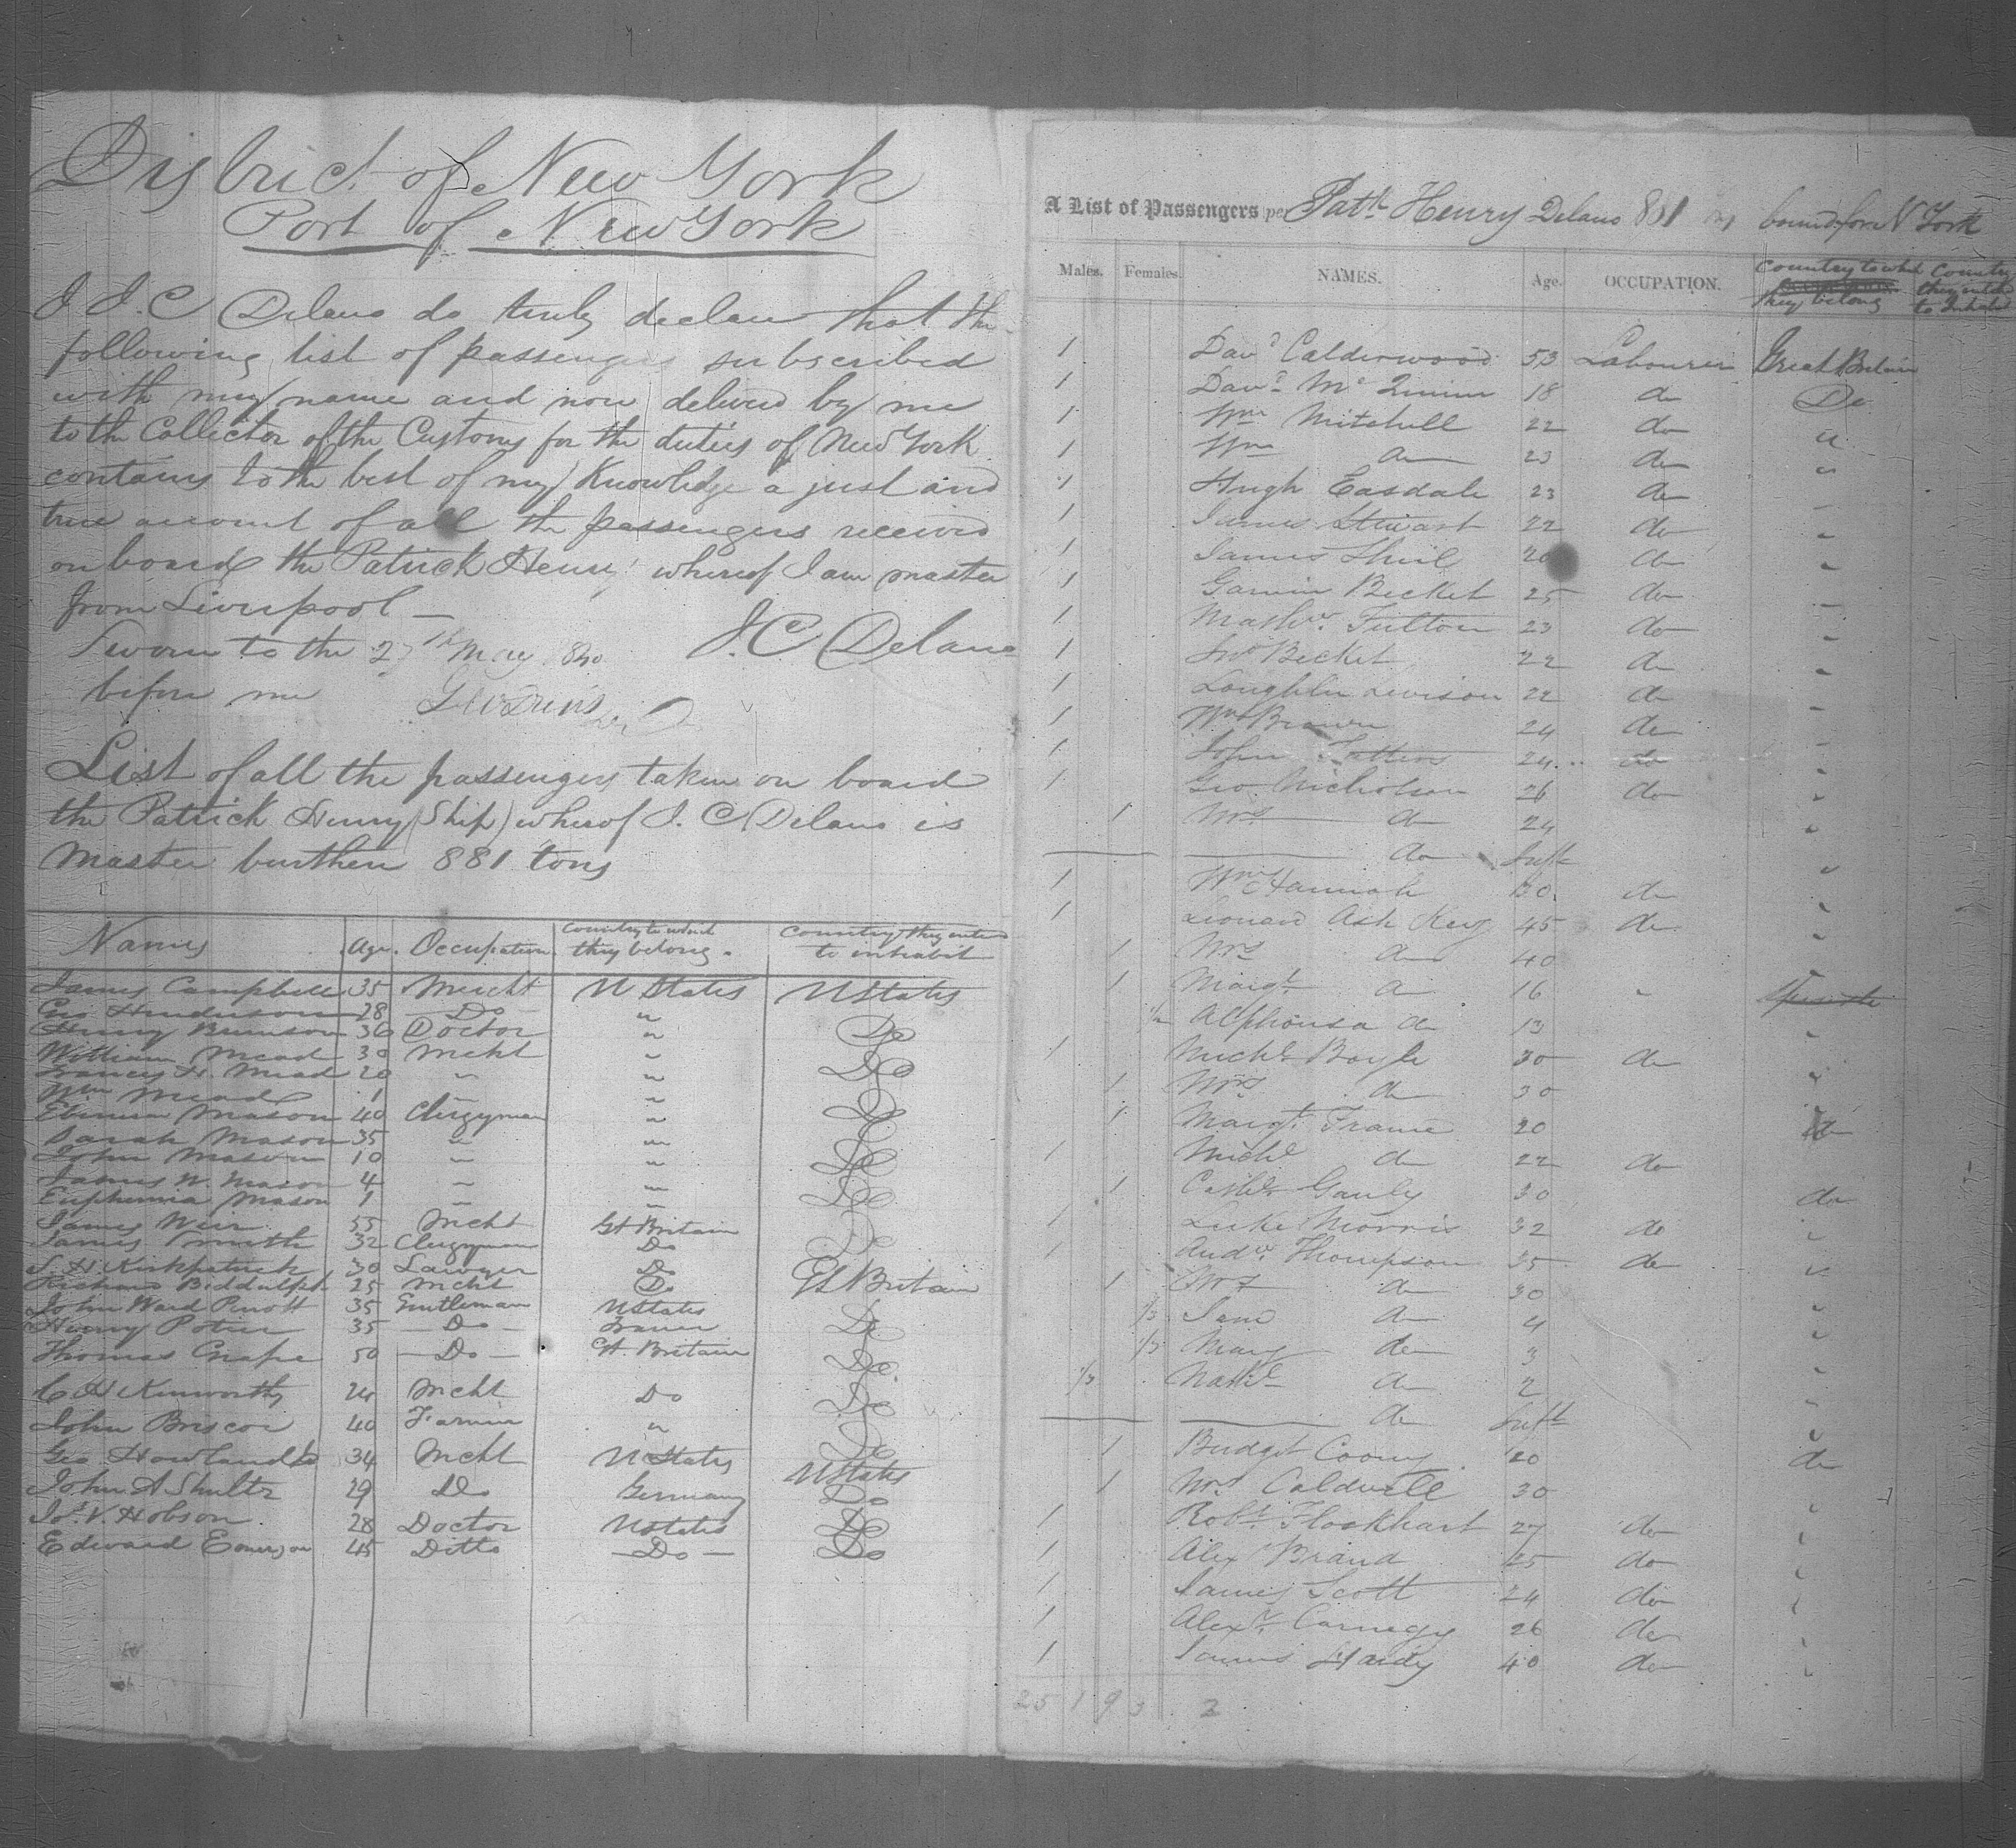 District of New York
Port of New York
I J. C Delano do truly declare that the
following list of passengers subscribed
with my name and now delivered by me
to the Collector of the Customs for the duties of New York
contains to the best of my Knowledge a just and
true account of all the passengers received
on board the Patrick Henry whereof I am master
from Liverpool —
Sworn to the 27th May 1840 J. C Delano
before me
List of all the passengers taken on board
the Patrick Henry (Ship) wherof J. C Delano is
Master burthen 881 tons
Names Age. Occupation Country to which they belong. Country they intend to inhabit
James Campbell 35 Mercht U States U States
Geo Henderson 28 Do "
Henry Brunson 36 Doctor " Do
William Mead 30 Mcht " Do
Frances H. Mead 20 " " Do
Wm Mead 1 " " Do
Ebenezer Mason 40 Clergyman " Do
Sarah Mason 35 " " Do
John Mason 10 " " Do
James W. Mason 4 " " Do
Euphemia Mason 1 " " Do
James Weir 55 Mcht Gt Britain Do
James Smith 32 Clergyman Do Do
S. H Kirkpatrick 30 Lawyer Do
Richard Biddulph 25 Mcht Do Gt Britain
John Ward 35 Gentleman U States Do
Henry Potier 35 Do France Do
Thomas 50 Do Gt. Britain Do
C H Kenworthy 24 Mcht Do Do
John Briscoe 40 Farmer " Do
Geo Howland 34 Mcht U States U States
John A Shultz 29 Do Germany Do
Jos. V. Hobson 28 Doctor U States Do
Edward Emerson 45 Ditto Do Do
A List of Passengers per Patk Henry Delano 881 bound for N York
Males. Females. NAMES. Age. OCCUPATION. Country to which they belong Country they intend to Inhabit
1 Davd Calderwood 53 Labourer Great Britain
1 Davd Mc Quinn 18 do Do
1 Wm Mitchell 22 do "
1 Wm do 23 do "
1 Hugh Easdale 23 do "
1 James Stewart 22 do "
1 James 20 do "
1 Gavin Becket 25 do "
1 Mathw. Fulton 23 do "
1 Jno Becket 22 do "
1 Loughlin Levison 22 do "
1 Wm Brown 24 do "
1 John 24 do "
1 Geo. Nicholson 26 do "
1 Mrs do 24 "
do Inft "
1 Wm Hannah 30 do "
1 Leonard Ash Key 45 do "
1 Mrs do 40 "
1 Margt. do 16 "
1/2 Alphonsa do 13 "
1 Michl Boyle 30 do "
1 Mrs do 30 "
1 Margt. Frame 20 do
1 Michl do 22 do
1 Cathe Gauly 30 do
1 Luke Morris 32 do "
1 Andw. Thompson 35 do "
1 Mrs do 30 "
1/3 Jane do 4 "
1/3 Mary do 3 "
1/3 Nathl do 2 "
do Inft "
1 Bridget Coony 20 do
1 Mrs Caldwell 30 "
1 Robt. Flockhart 27 do "
1 Alex Brand 25 do "
1 James Scott 24 do "
1 Alexr. Carnegy 26 do "
1 James Hardy 40 do "
25 1 9 3 2